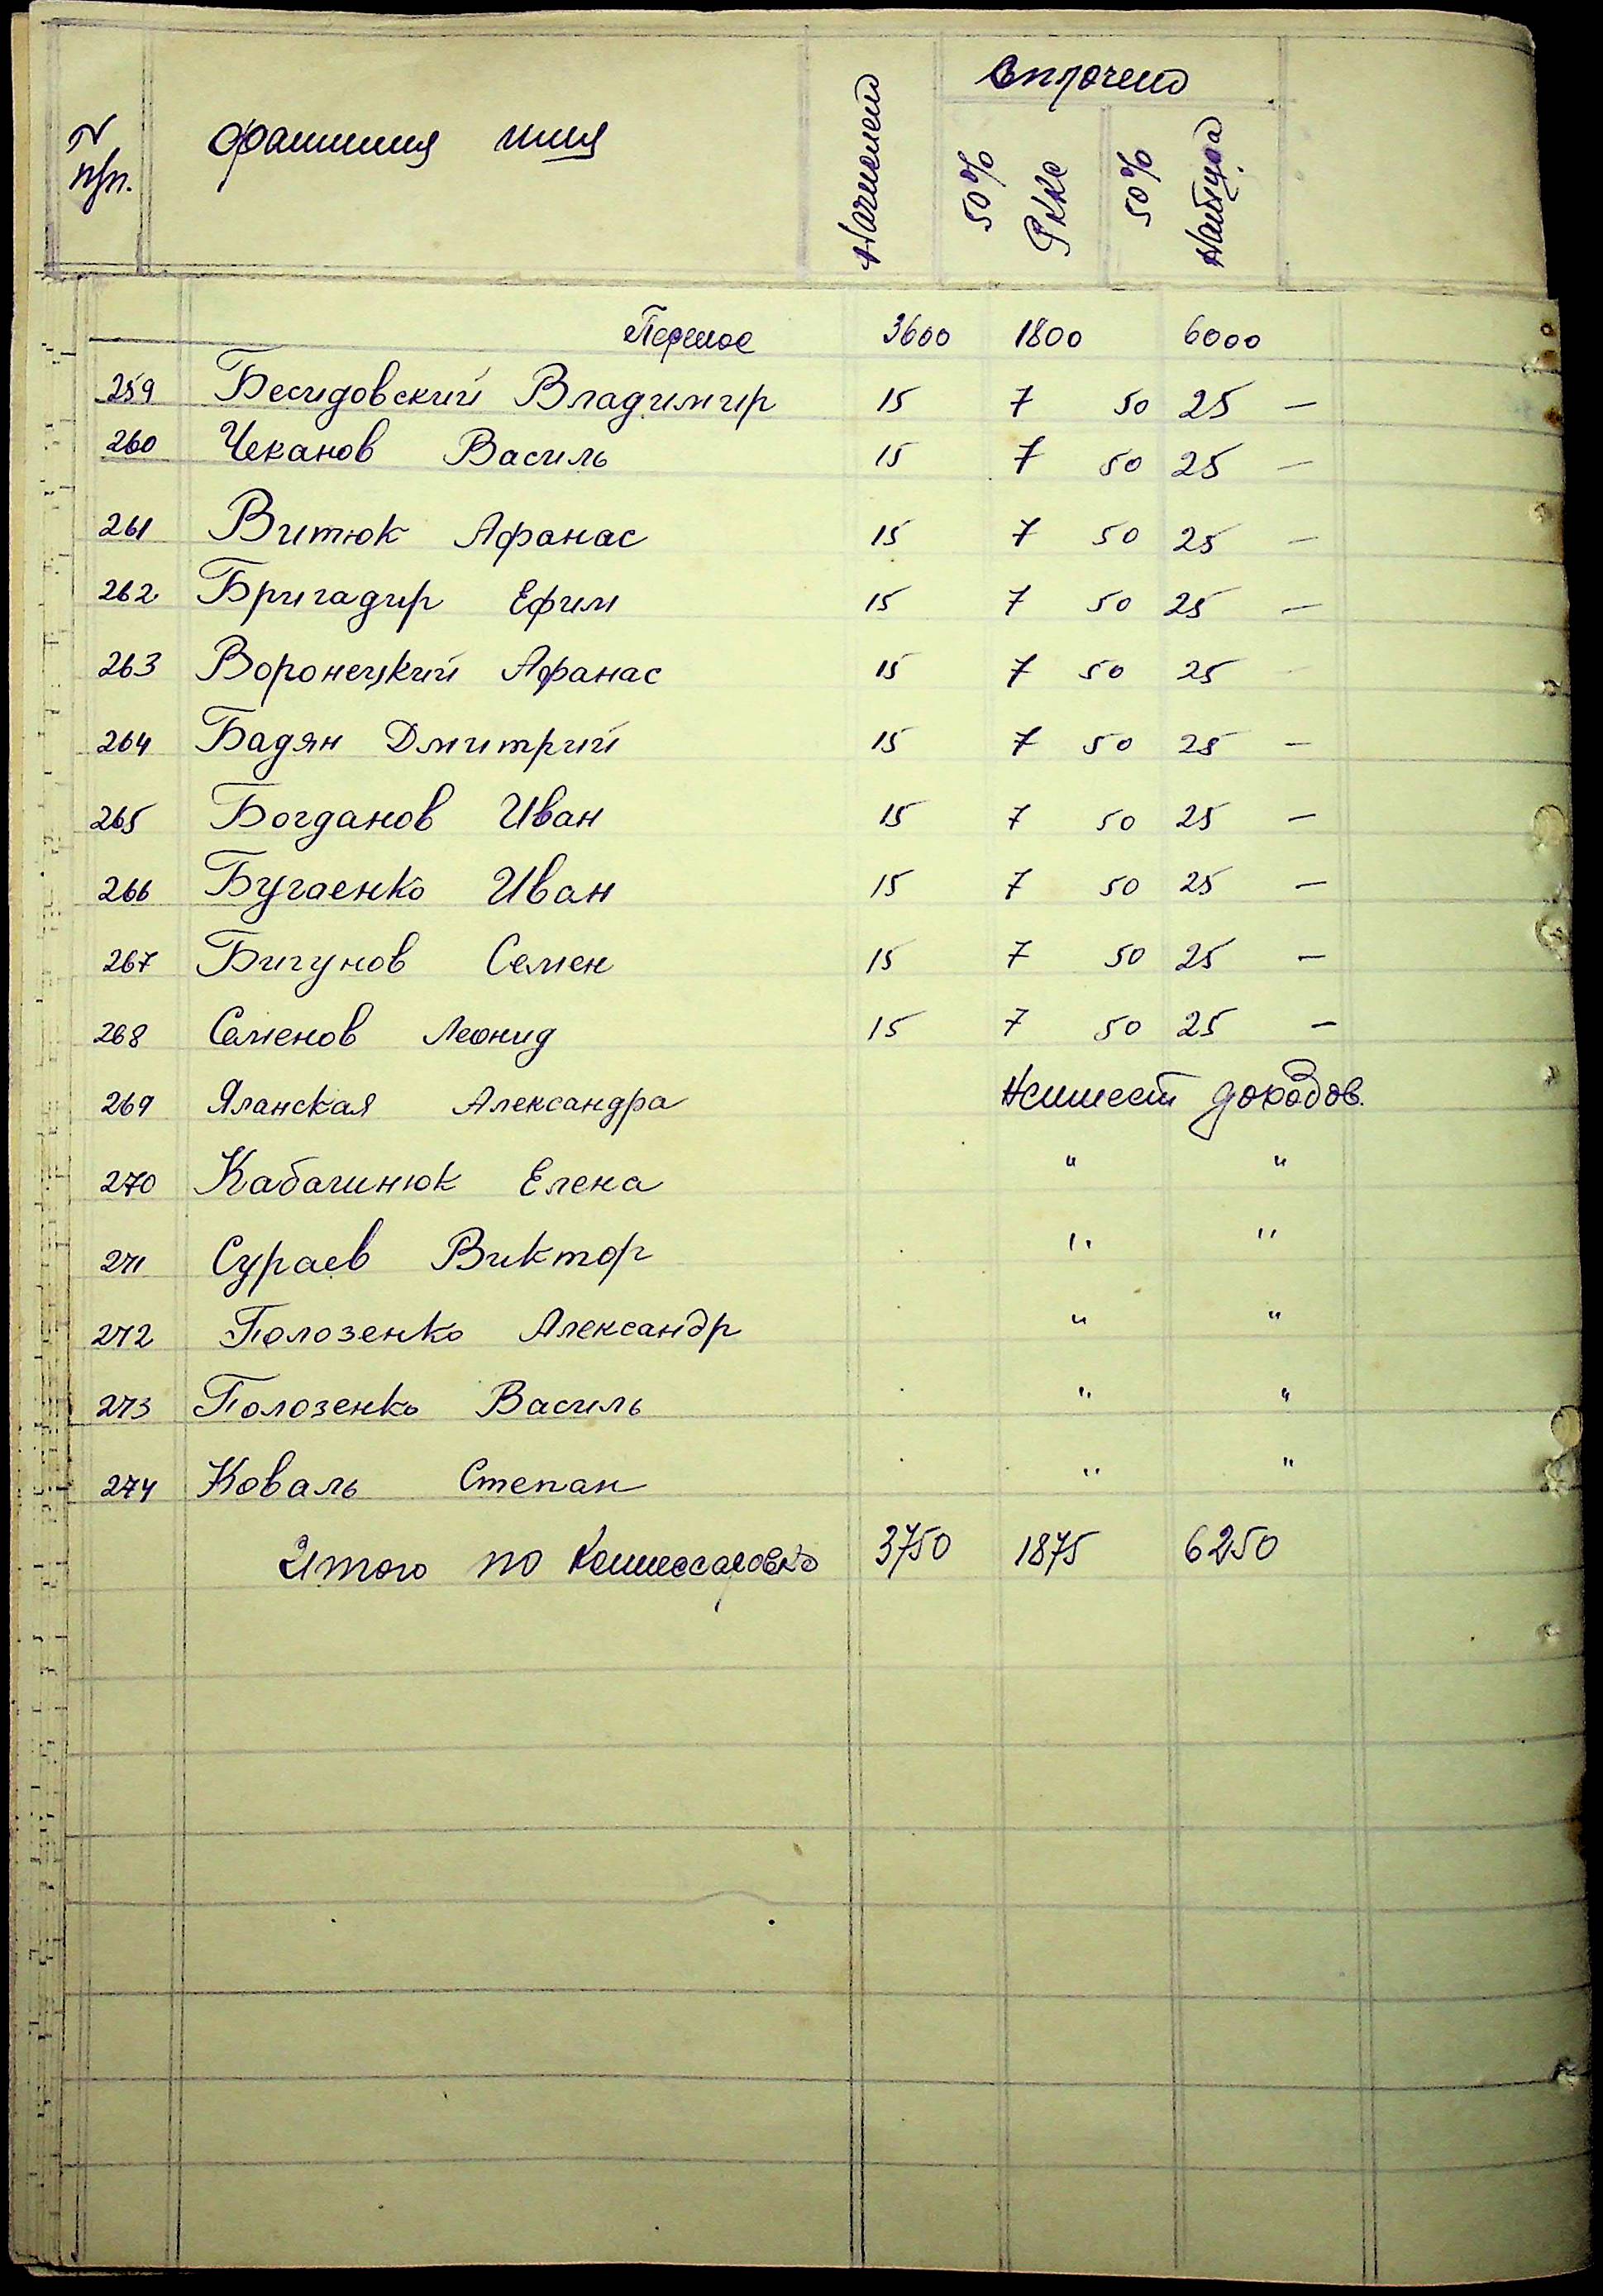 N п/п. фамилия имя Начислено Внрочено
50% РККС 50% Натурд
Перенос 3600 1800 6000
259 Бесидовский Владимир 15 7 50 25 —
260 Чеканов Василь 15 7 50 25 —
261 Витюк Афанас 15 7 50 25 —
262 Бригадир Ефим 15 7 50 25 —
263 Воронецкий Афанас 15 7 50 25 —
264 Бадян Дмитрий 15 7 50 25 —
265 Богданов Иван 15 7 50 25 —
266 Бугаенко Иван 15 7 50 25 —
267 Бигунов Семен 15 7 50 25 —
268 Семенов Леонид 15 7 50 25 —
269 Яланская Александра Неимеет доходов.
270 Кабачинюк Елена " "
271 Сураев Виктор " "
272 Полозенко Александр " "
273 Полозенко Василь " "
274 Коваль Степан " "
Итого по Комиссаровко 3750 1875 6250